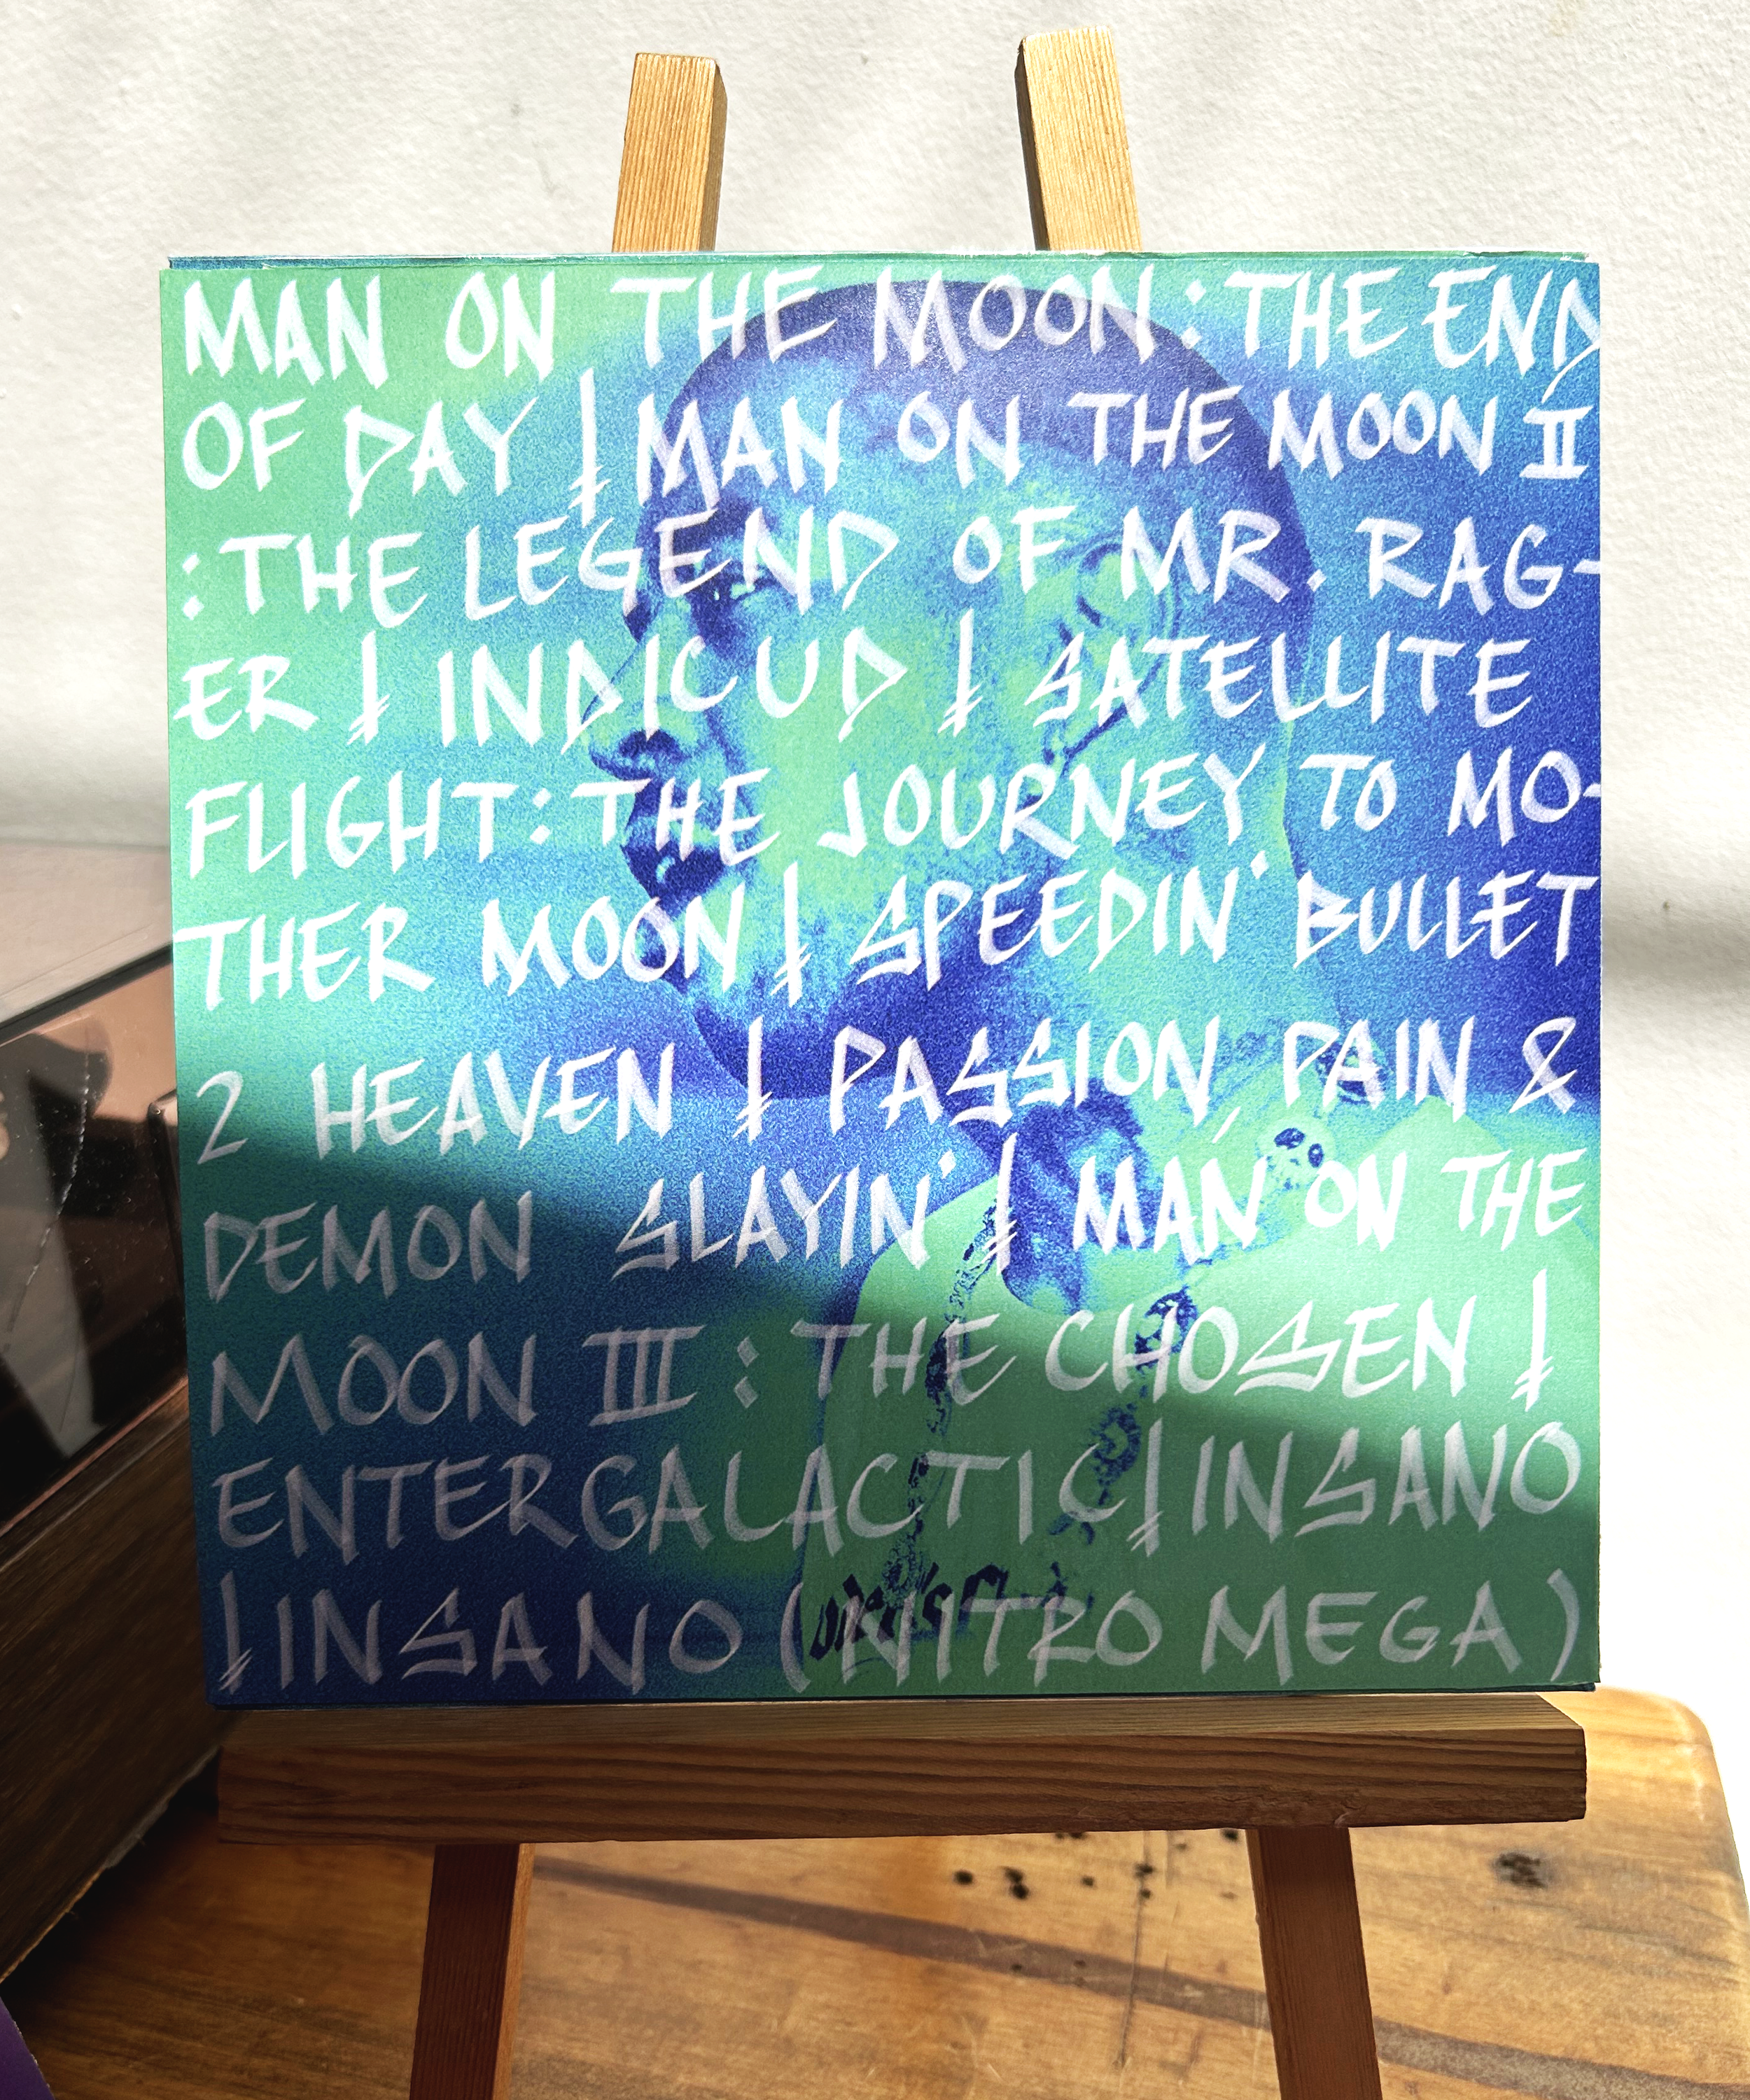 MAN ON THE MOON: THE END
OF DAY | MAN ON THE MOON II
: THE LEGEND OF MR. RAG-
ER | INDICUD | SATELLITE
FLIGHT: THE JOURNEY TO MO-
THER MOON | SPEEDIN' BULLET
2 HEAVEN | PASSION, PAIN &
DEMON SLAYIN' | MAN ON THE
MOON III: THE CHOSEN |
ENTERGALACTIC | INSANO
| INSANO (NITRO MEGA)